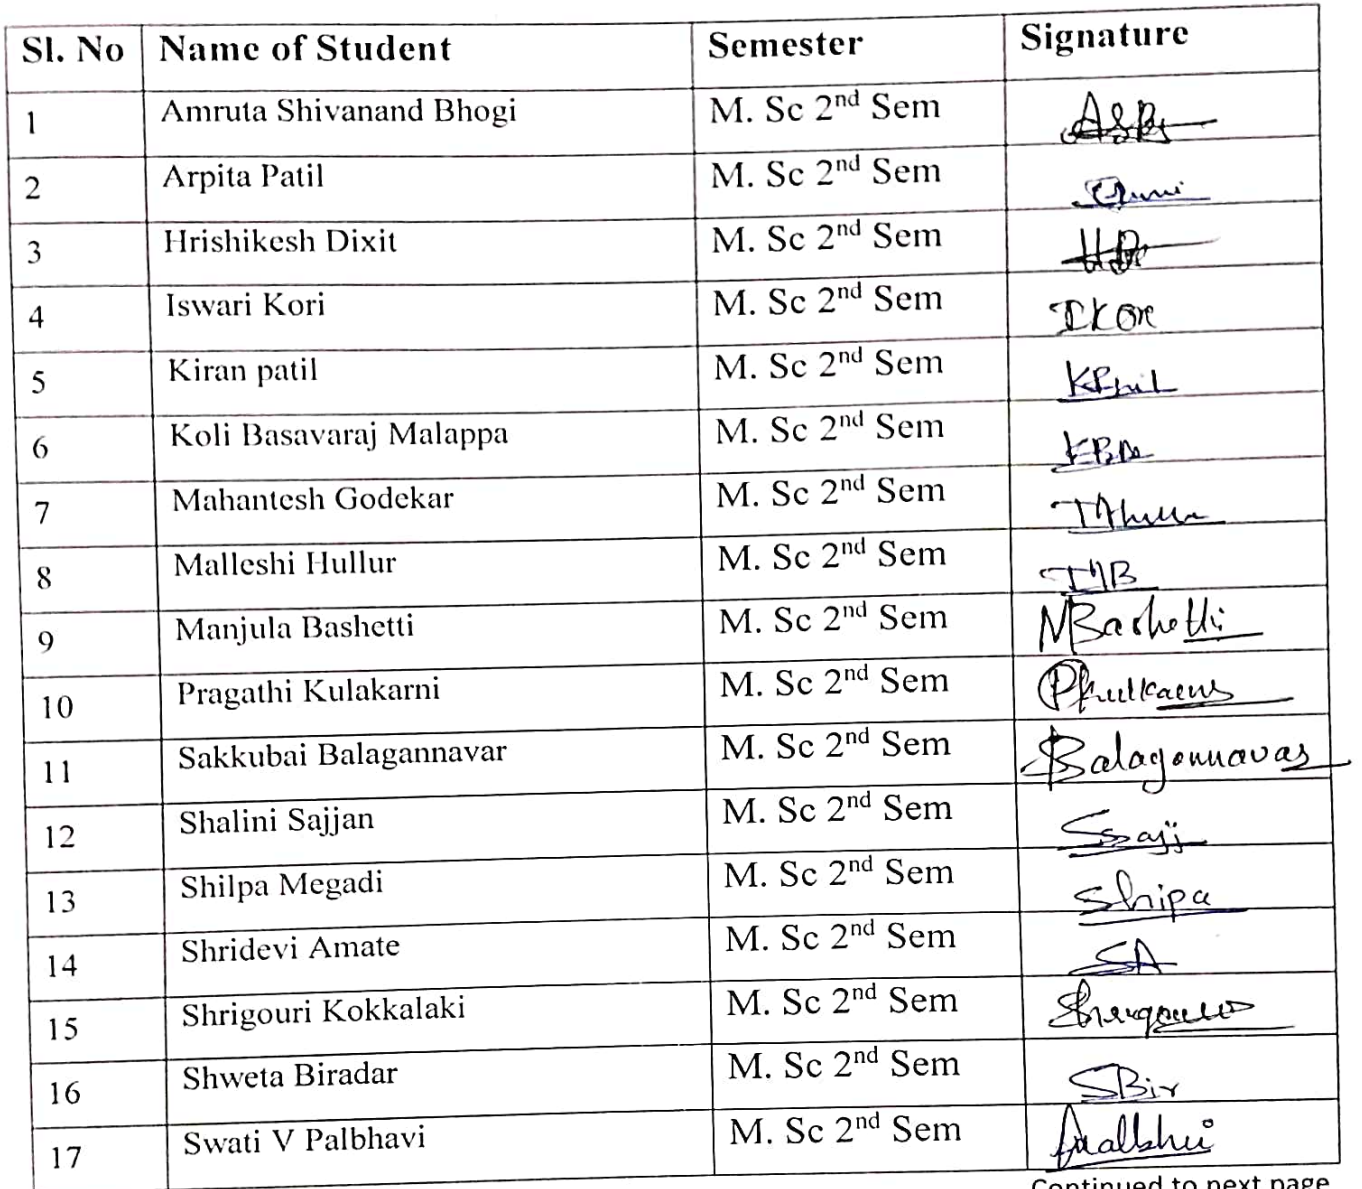 Sl. No Name of Student Semester Signature
1 Amruta Shivanand Bhogi M. Sc 2nd Sem
2 Arpita Patil M. Sc 2nd Sem
3 Hrishikesh Dixit M. Sc 2nd Sem
4 Iswari Kori M. Sc 2nd Sem
5 Kiran patil M. Sc 2nd Sem
6 Koli Basavaraj Malappa M. Sc 2nd Sem
7 Mahantesh Godekar M. Sc 2nd Sem
8 Malleshi Hullur M. Sc 2nd Sem
9 Manjula Bashetti M. Sc 2nd Sem MBashetti
10 Pragathi Kulakarni M. Sc 2nd Sem
11 Sakkubai Balagannavar M. Sc 2nd Sem
12 Shalini Sajjan M. Sc 2nd Sem SSajj
13 Shilpa Megadi M. Sc 2nd Sem Shipa
14 Shridevi Amate M. Sc 2nd Sem SA
15 Shrigouri Kokkalaki M. Sc 2nd Sem
16 Shweta Biradar M. Sc 2nd Sem SBir
17 Swati V Palbhavi M. Sc 2nd Sem
Continued to next page